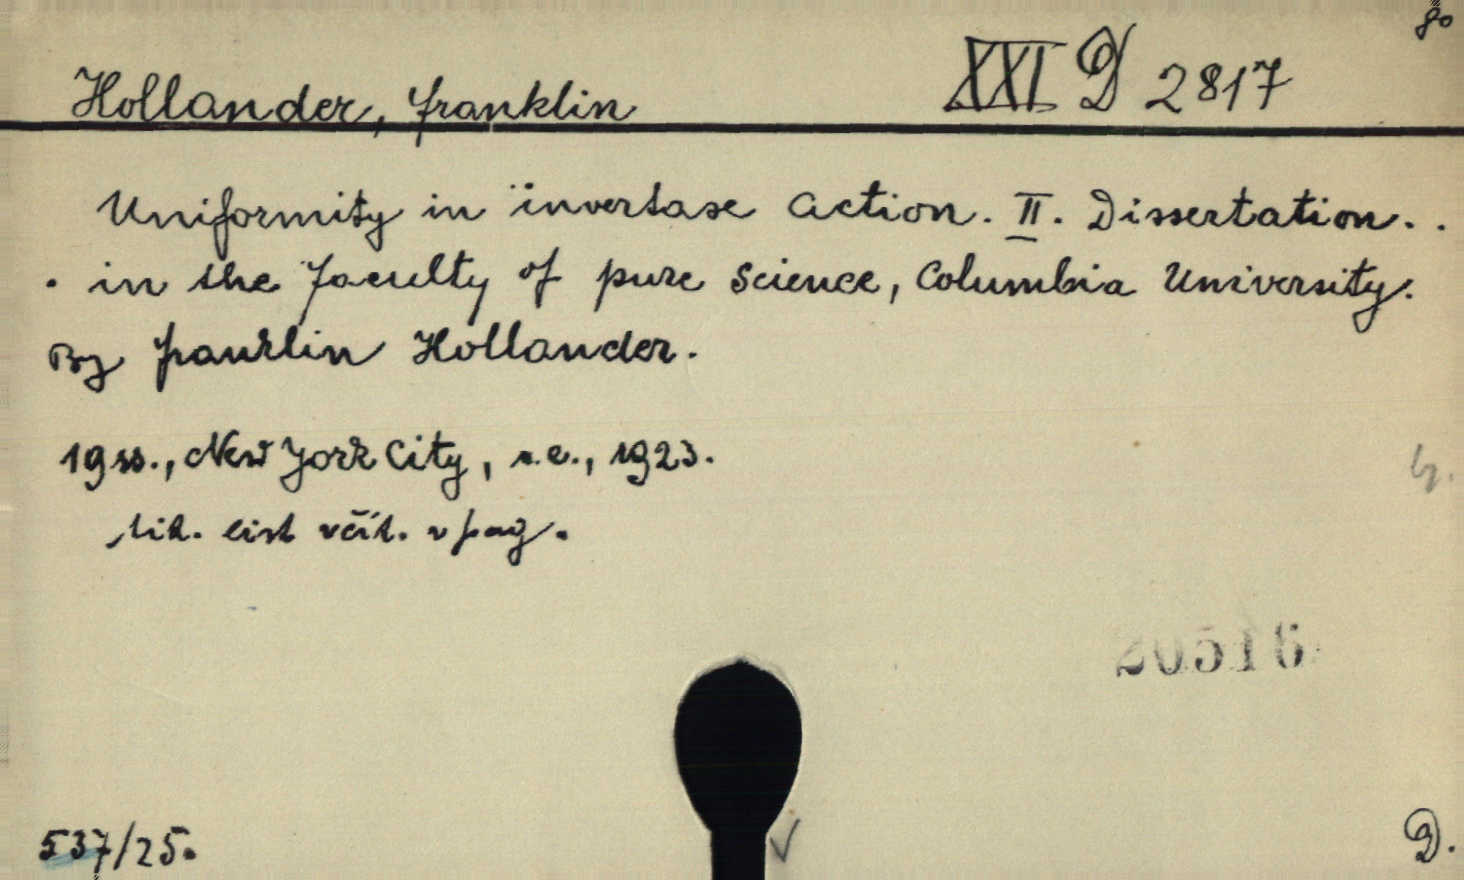 8°
Hollander, Franklin XXI D 2817
Uniformity in invertase action. II. Dissertation. .
. in the Faculty of pure Science, Columbia University.
By Franklin Hollander.
19 ss., New York City, s.e., 1923.
tit. list včít. v pag.
h.
20516
537/25.
D.